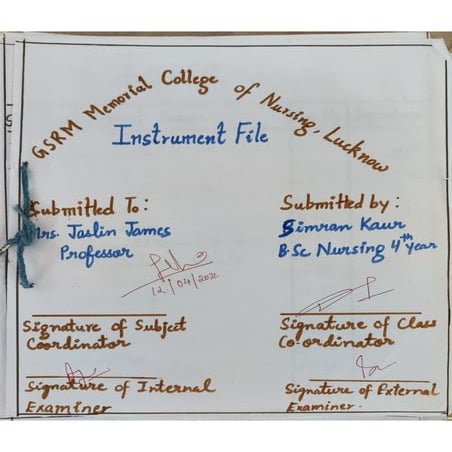 GSRM Memorial College of Nursing, Lucknow
Instrument File
Submitted To:
Mrs. Jaslin James
Professor
12/04/2022
Submitted by:
Simran Kaur
B.Sc Nursing 4th year
Signature of Subject
Coordinator
Signature of Class
Co-ordinator
Signature of Internal
Examiner
Signature of External
Examiner.